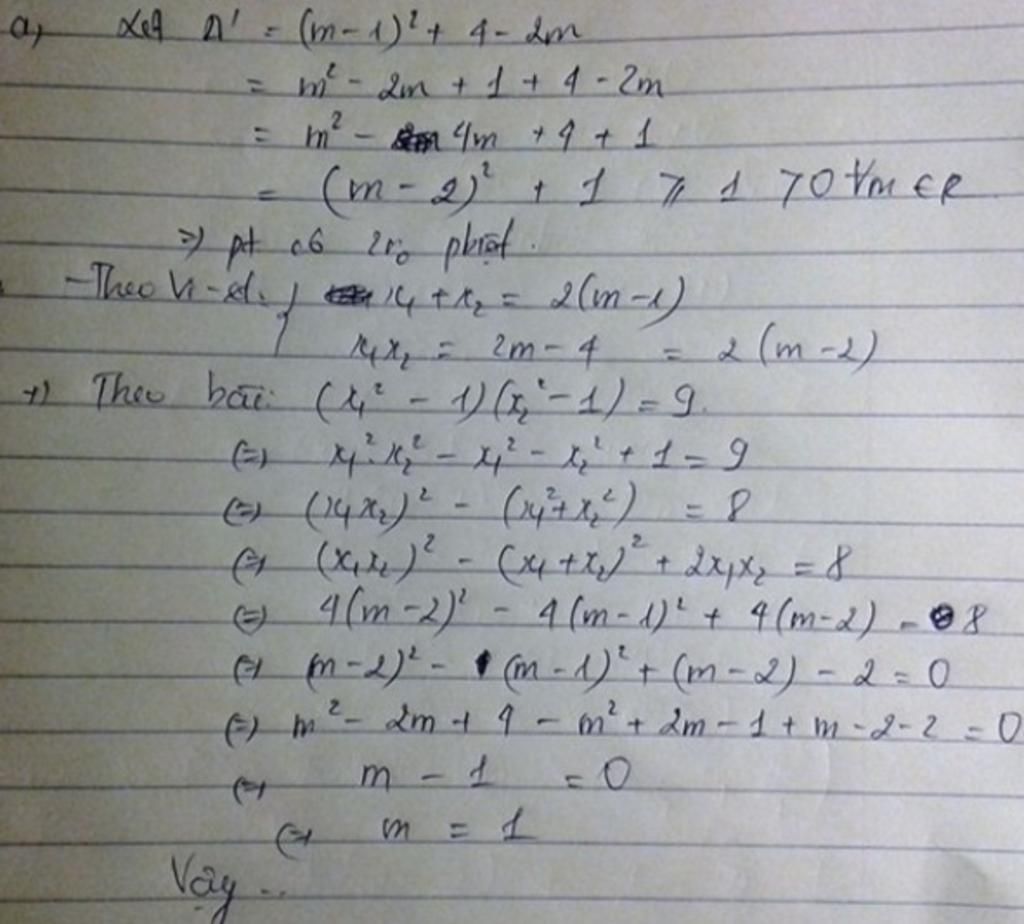 a) Xét Δ' = (m-1)² + 4 - 2m
= m² - 2m + 1 + 4 - 2m
= m² - 4m + 4 + 1
= (m-2)² + 1 ⩾ 1 > 0 ∀m ∈ R
=> pt có 2 n₀ pbiệt.
- Theo Vi-et: { x₁ + x₂ = 2(m-1)
x₁x₂ = 2m - 4 = 2(m-2)
+) Theo bài: (x₁² - 1)(x₂² - 1) = 9.
(=) x₁².x₂² - x₁² - x₂² + 1 = 9
(=) (x₁x₂)² - (x₁² + x₂²) = 8
(=) (x₁x₂)² - (x₁ + x₂)² + 2x₁x₂ = 8
(=) 4(m-2)² - 4(m-1)² + 4(m-2) = 8
(=) (m-2)² - (m-1)² + (m-2) - 2 = 0
(=) m² - 2m + 4 - m² + 2m - 1 + m - 2 - 2 = 0
(=) m - 1 = 0
(=) m = 1
Vậy ..